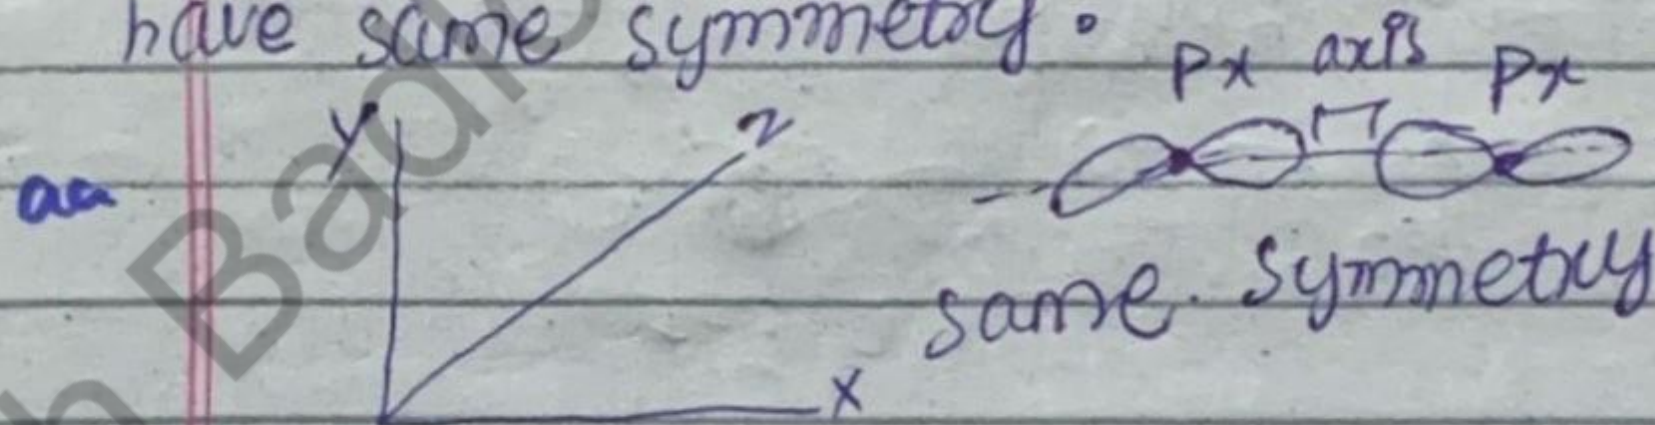 have same symmetry.
Px axis Px
Y
z
aa
same. symmetry
X